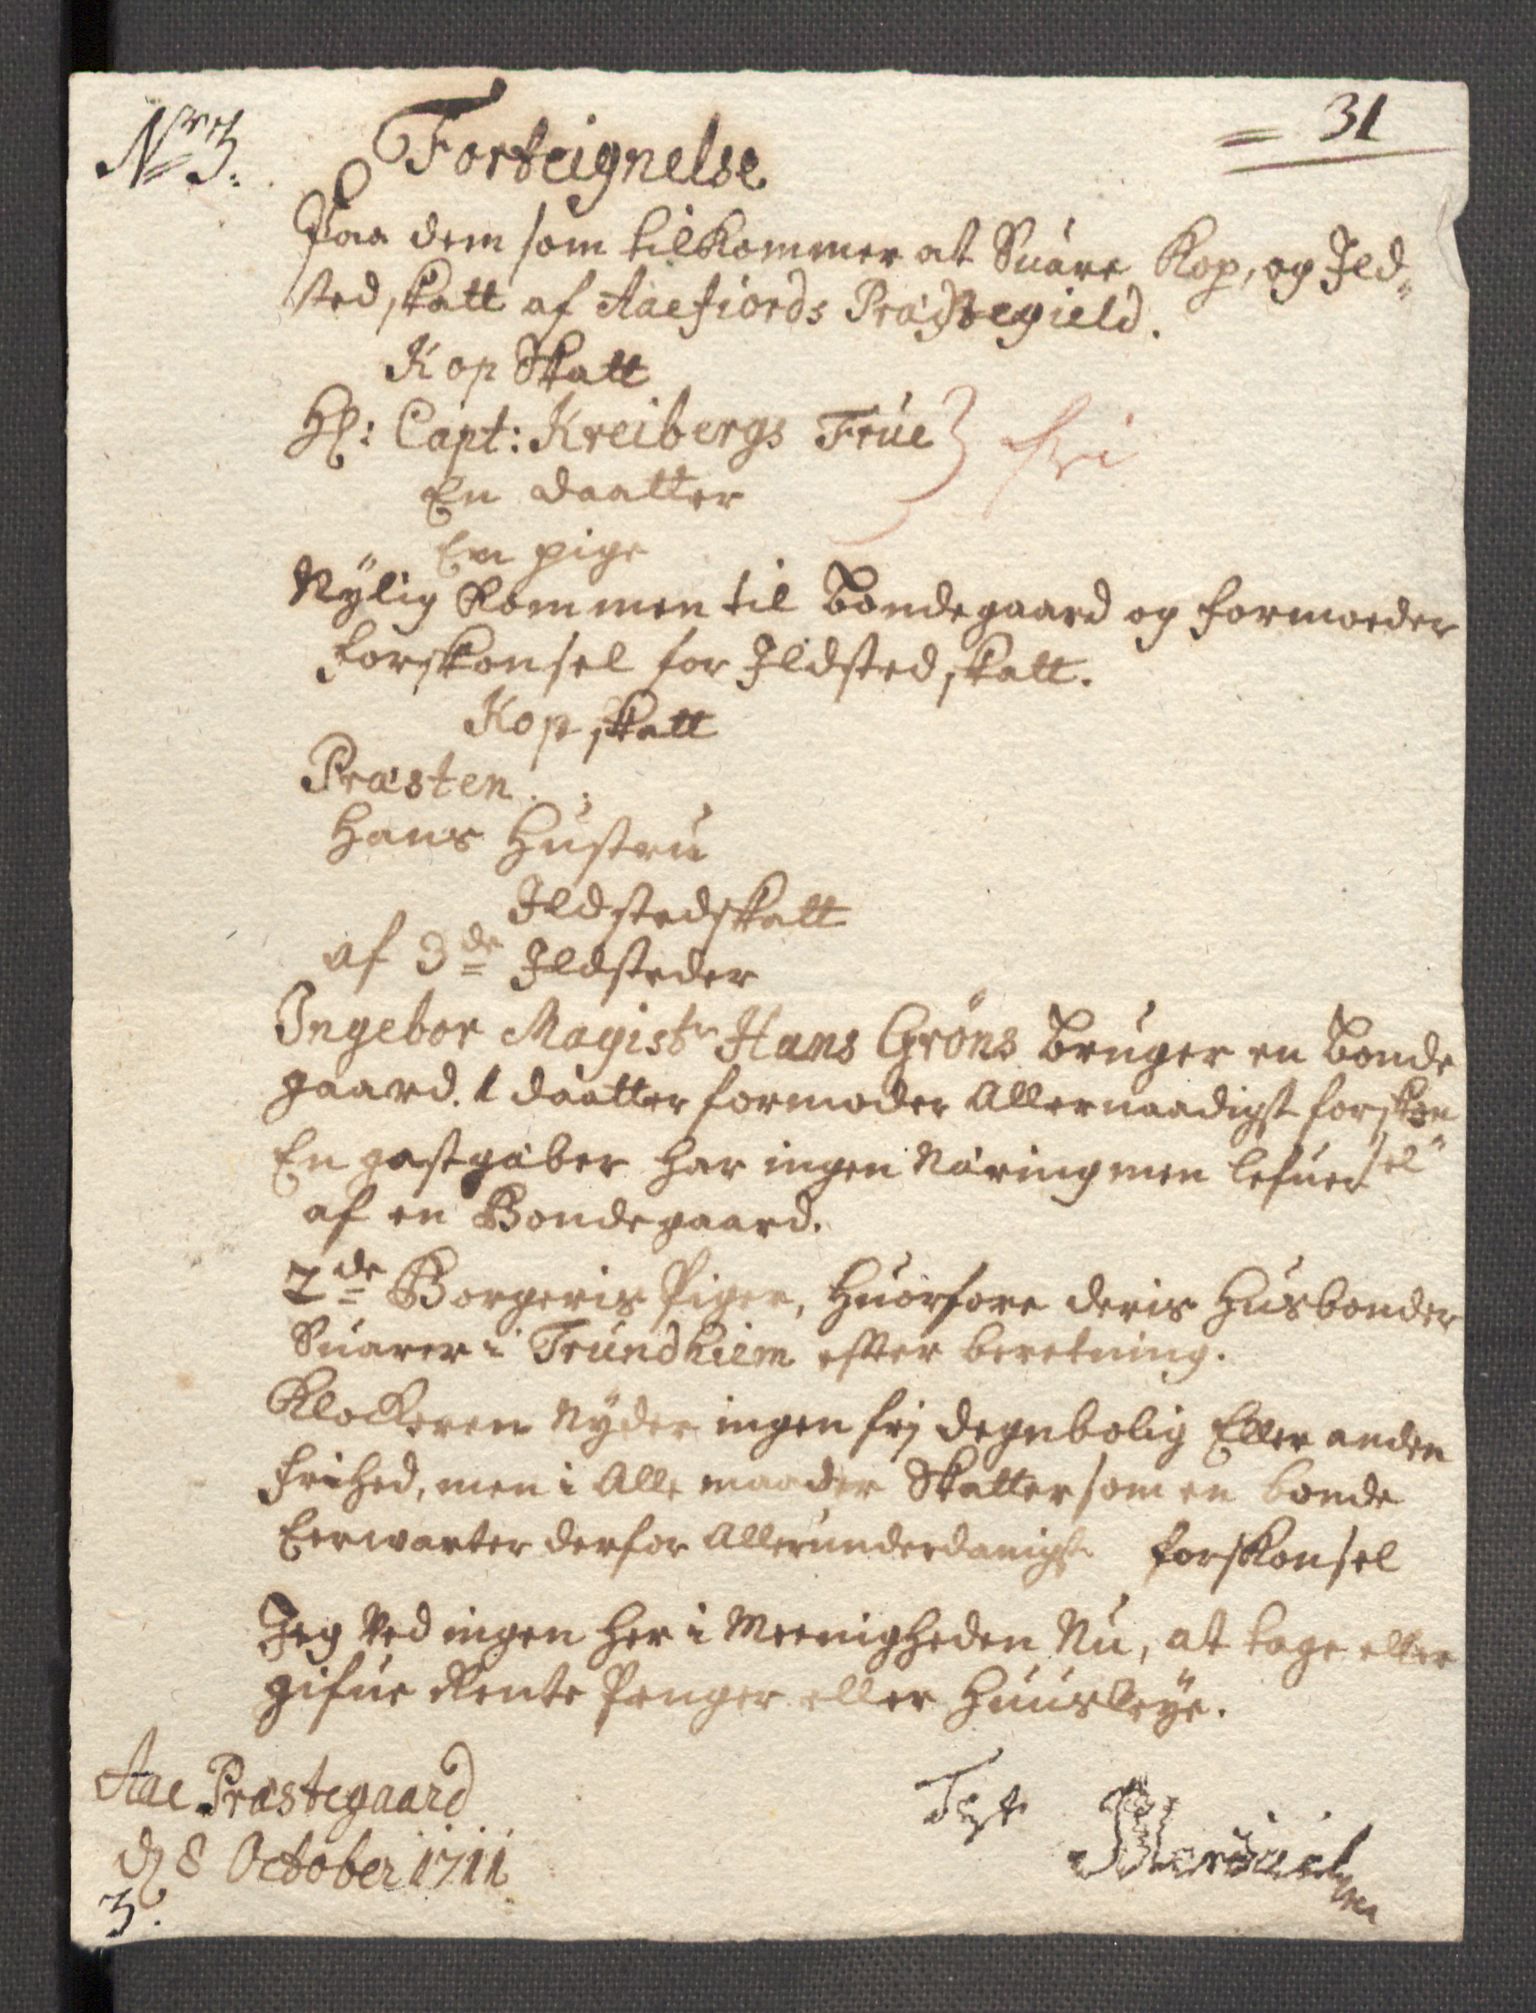 Nr 3.
= 31
Forteignelse
Paa dem som tilkommer at Suare Kop, og Ild=
sted skatt af Aaefiords Præstegield.
Kop Skatt
Hr: Capt: Kreibergs Frue } fri
En daatter
En pige
Nÿlig kommen til Bondegaard og formoeder
forskonsel for Ildsted skatt.
Kop skatt
Præsten.
Hans Hustru
Ildstedskatt
af 3de Ildsteder
Ingebor Magistr Hans Gröns bruger en bonde
gaard. 1 daatter formoder allernaadigst forskon
sel
En gastgiber har ingen Næring men lefuer
af en Bondegaard.
2de Borgeris Piger, huorfore deris Husbonder
Suarer i Trundhiem efter beretning.
Klockeren nÿder ingen frj degnbolig Eller anden
frihed, men i alle maader Skatter som en bonde
Eerwarter derfor allerunderdanigst forskonsel
Jeg ved ingen her i Meenigheden Nu, at tage eller
gifue Rente Penger eller Huusleÿe.
Aae Præstegaard
d 8 October 1711
3.